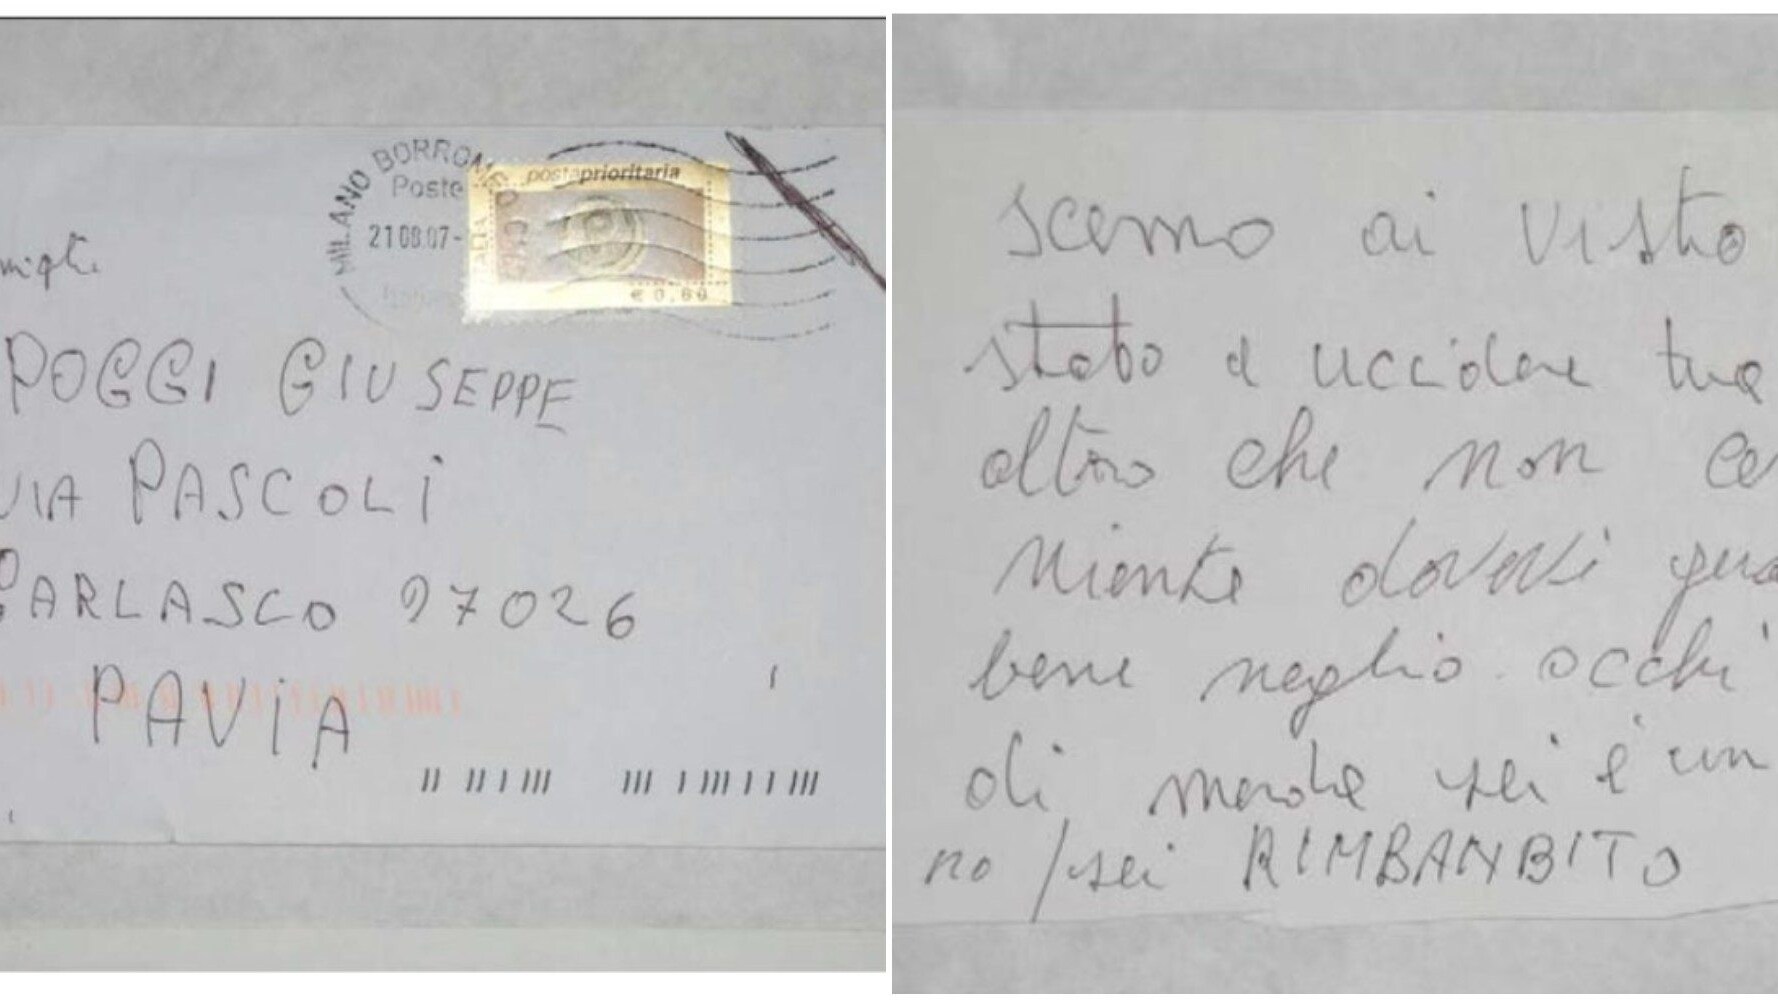 MILANO BORROMEO C
Poste
21 08.07-
postaprioritaria
ITALIA
€ 0,60
POGGI GIUSEPPE
VIA PASCOLI
GARLASCO 27026
PAVIA
scemo ai visto
stato a uccidere tua
altro che non ce
niente dovevi gua
bene neglio occhi
di merda sei è un
no / sei RIMBANBITO